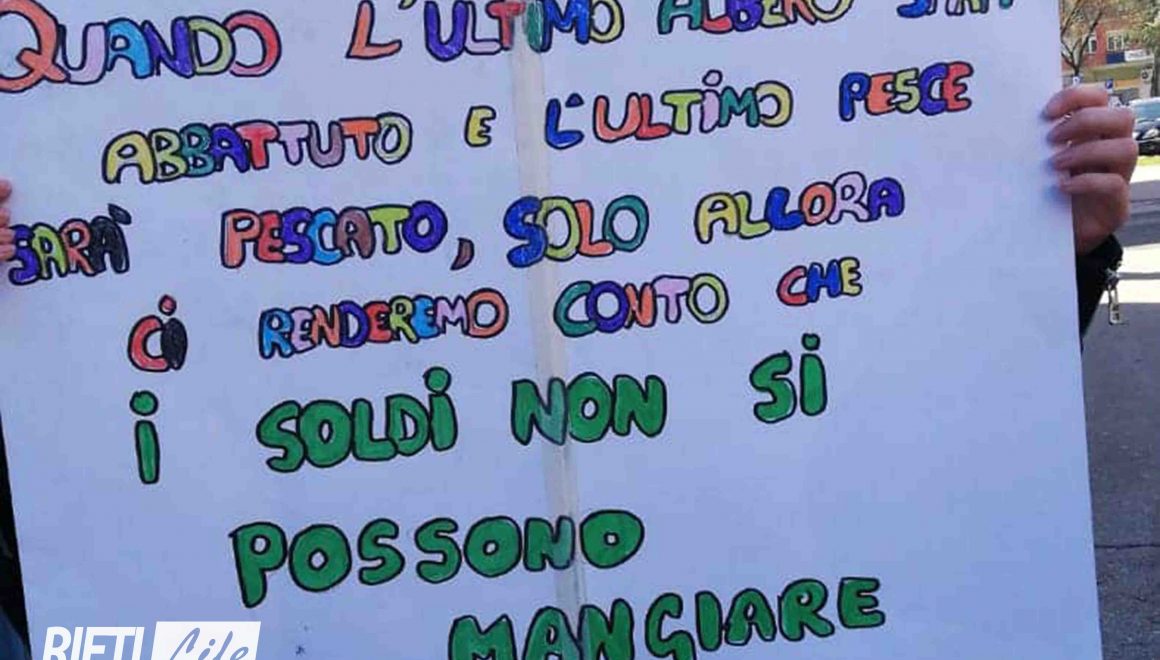 QUANDO L'ULTIMO ALBERO SARA'
ABBATTUTO E L'ULTIMO PESCE
SARA' PESCATO, SOLO ALLORA
CI RENDEREMO CONTO CHE
I SOLDI NON SI
POSSONO
MANGIARE
RIETI Life